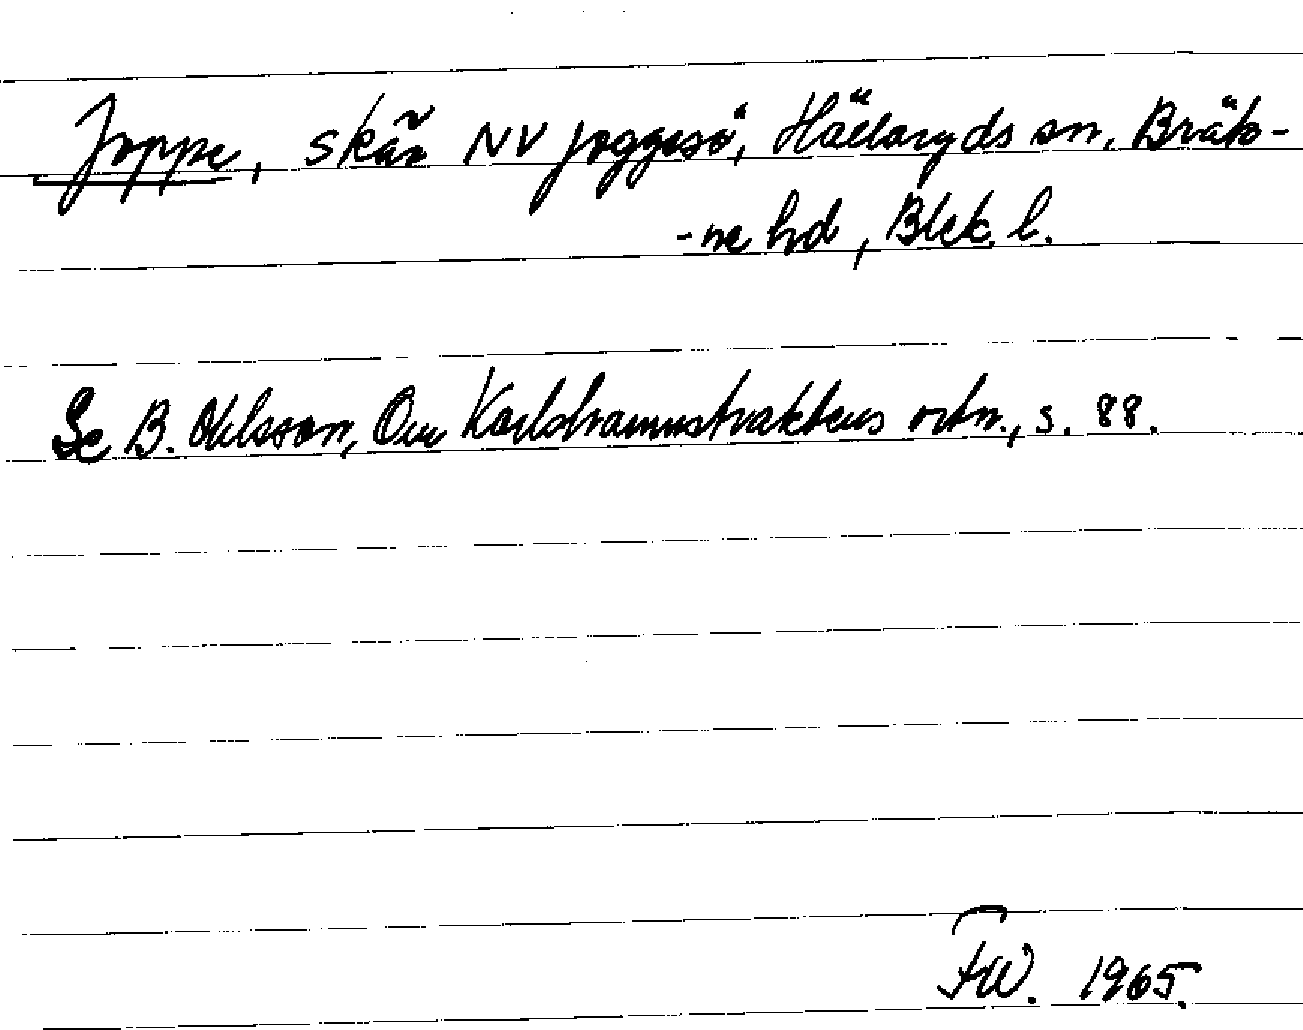 Joppe, skär NV Joggesö, Hällaryds sn, Bräk-
-ne hd, Blek. l.
Se B. Ohlsson, Om Karlshamnstraktens ortn., s. 88.
FW. 1965.